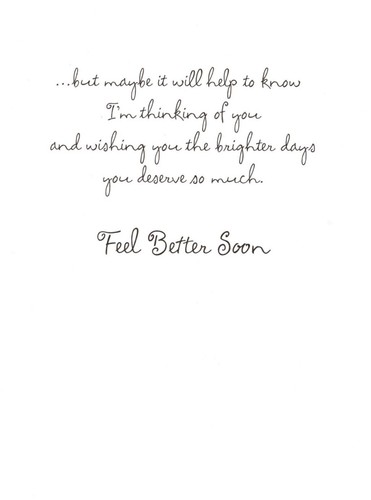 ...but maybe it will help to know
I'm thinking of you
and wishing you the brighter days
you deserve so much.
Feel Better Soon